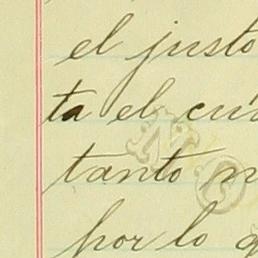 el justo
ta el cua
tanto n
por lo q